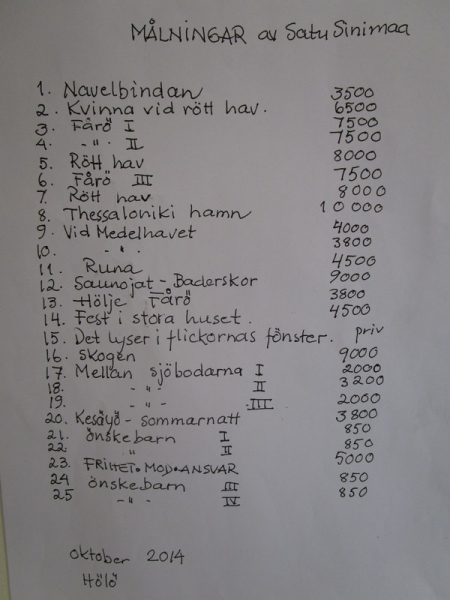 MÅLNINGAR av Satu Sinimaa
1. Navelbindan 3500
2. Kvinna vid rött hav. 6500
3. Fårö I 7500
4. -"- II 7500
5. Rött hav 8000
6. Fårö III 7500
7. Rött hav 8000
8. Thessaloniki hamn 10 000
9. Vid Medelhavet 4000
10. -"- 3800
11. Runa 4500
12. Saunojat - Baderskor 9000
13. Hölje Fårö 3800
14. Fest i stora huset. 4500
15. Det lyser i flickornas fönster. priv
16. Skogen 9000
17. Mellan sjöbodarna I 2000
18. -"- II 3200
19. -"- III 2000
20. Kesäyö - sommarnatt 3800
21. önskebarn I 850
22 -"- II 850
23. FRIHET•MOD•ANSVAR 5000
24 önskebarn III 850
25 -"- IV 850
oktober 2014
Hölö